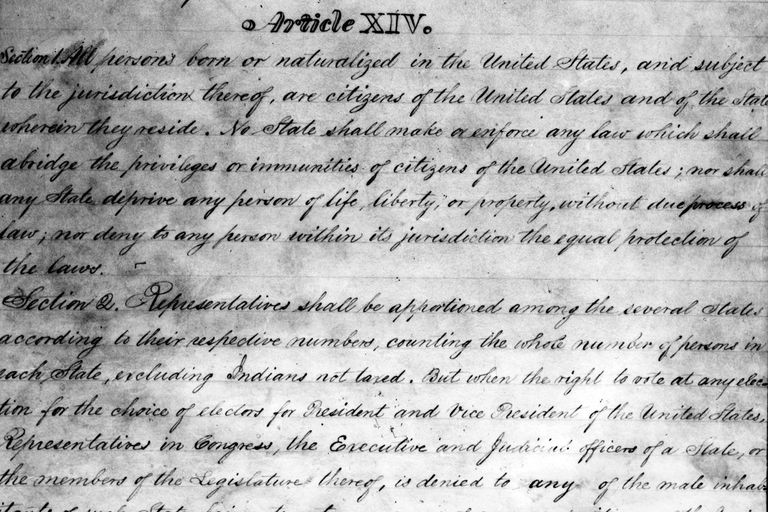 Article XIV.
Section 1. All persons born or naturalized in the United States, and subject
to the jurisdiction thereof, are citizens of the United States and of the State
wherein they reside. No State shall make or enforce any law which shall
abridge the privileges or immunities of citizens of the United States; nor shall
any State deprive any person of life, liberty, or property, without due process of
law; nor deny to any person within its jurisdiction the equal protection of
the laws.
Section 2. Representatives shall be apportioned among the several States
according to their respective numbers, counting the whole number of persons in
each State, excluding Indians not taxed. But when the right to vote at any elec-
tion for the choice of electors for President and Vice President of the United States,
Representatives in Congress, the Executive and Judicial officers of a State, or
the members of the Legislature thereof, is denied to any of the male inhab-